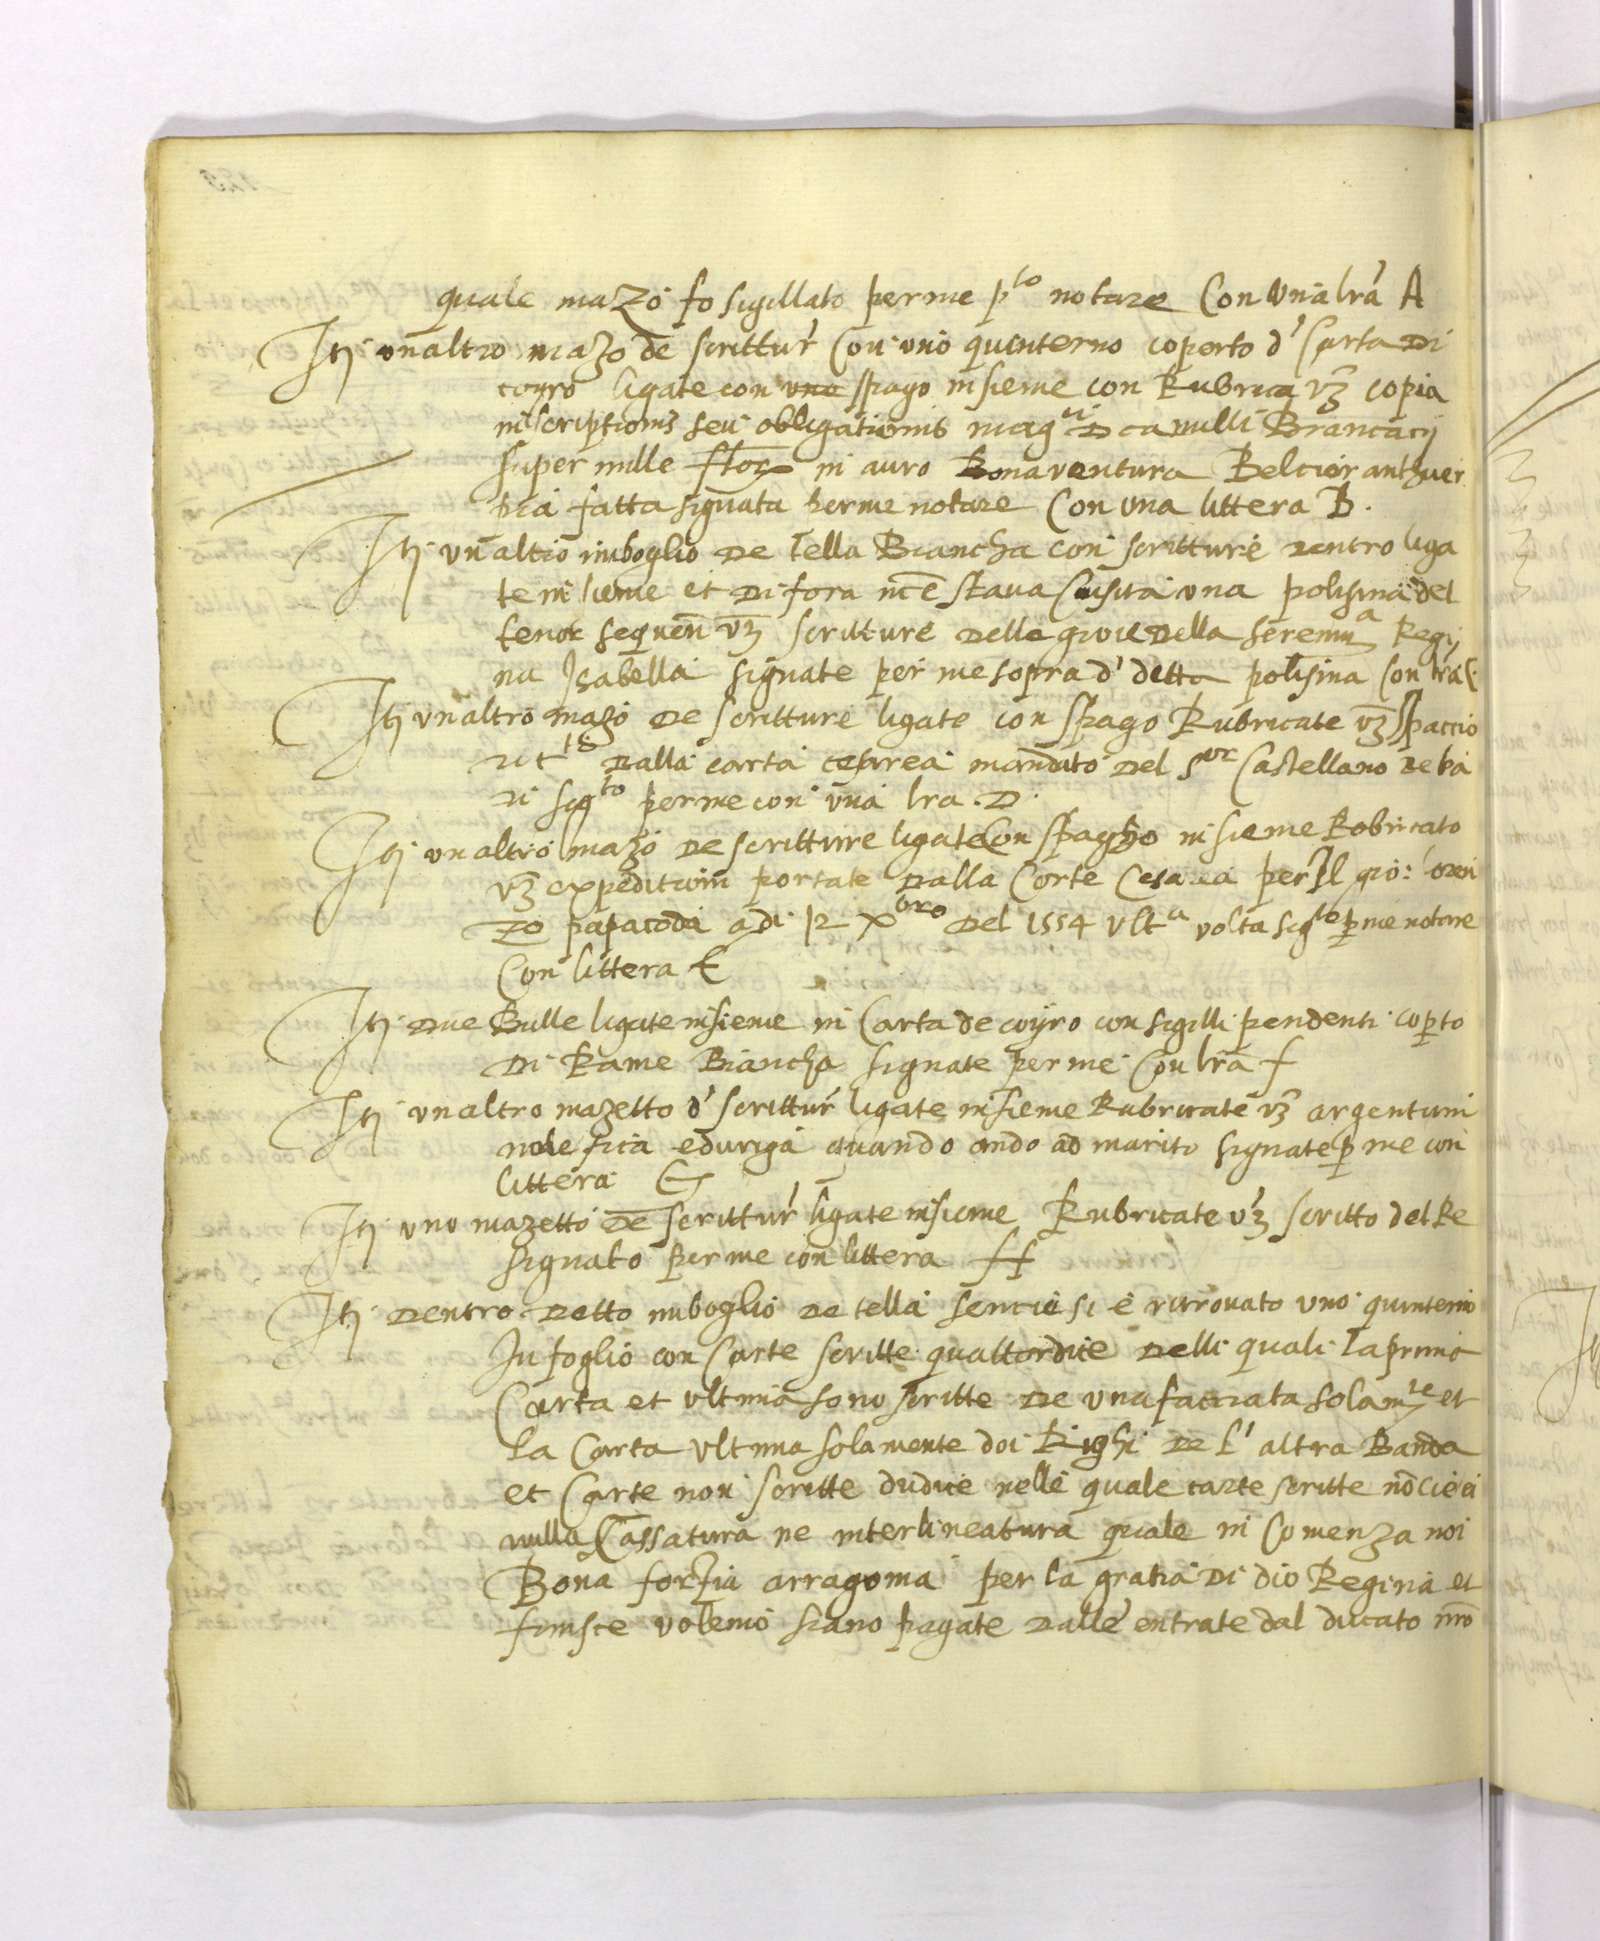 quale mazo fo sigillato per me p^to notare Con una lrã A
Itj un altro mazo de scrittur' Con uno quinterno coperto d' Carta di
coyro ligate con uno spago insieme con Rubrica vz copia
inscriptionis seu obligationis mag^ci D camilli Brancacij
super mille flor in auro Bonaventura Belcior antzuer
pia fatta signata per me notare Con una littera B.
Itj un altro imboglio de Tella Biancha con scritture dentro liga
te insieme et di fora nce stava Cusita una polisina del
tenor sequen vz scritture delle gioie della seremm^a Regij
na Isabella signate per me sopra d' detta polisina Con lrã C.
Itj un altro mazo de scritture ligate con spago Rubricate vz spaccio
dalla carta cesarea mandato del s^or Castellano de ba
ri sig^to per me con una lra. D.
Itj un altro mazo de scritture ligate Con spagho insieme Robricato
vz expeditioni portate dalla Corte Cesarea per Il gio: loren
zo papacoda adi 12 X^bro del 1554 ult^a volta sig^to p me notare
Con littera E
Itj due Bulle ligate insieme in Carta de coyro con sigilli pendenti coperto
di Rame Biancha signate per me Con lrã f
Itj un altro mazetto d' scrittur' ligate insieme Rubricate vz argentum
quando ando ad marito signate p me con
littera G
Itj uno mazetto de scrittur' ligate insieme Rubricate vz scritto del Re
signato per me con littera H
Itj dentro detto imboglio de tella si è ritrovato uno quinterno
In foglio con Carte scritte quattordice delli quali la prima
Carta et ultima sono scritte de una facciata solam^te et
la Carta ultima solamente doi Righi de l' altra Banda
et Carte non scritte dudice nelle quale carte scritte nõ cie è
nulla Cassatura ne interlineatura quale in Comenza noi
Bona sforzia arragonia per la gratia di dio Regina et
finisce volemo siano pagate dalle entrate dal ducato nrõ